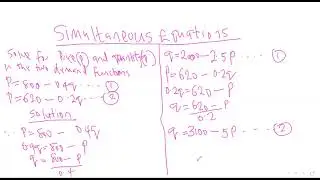 Simultaneous Equations
Solve for Price(p) and quantity(q)
in the two demand functions
P=800 - 0.4q ---- ①
P=620 - 0.2q ---- ②
Solution
∴ P=800 - 0.4q
0.4q = 800 - P
q = 800 - P
0.4
q = 2000 - 2.5p ---- ①
P = 620 - 0.2q
0.2q = 620 - P
q = 620 - P
0.2
q = 3100 - 5P ---- ②